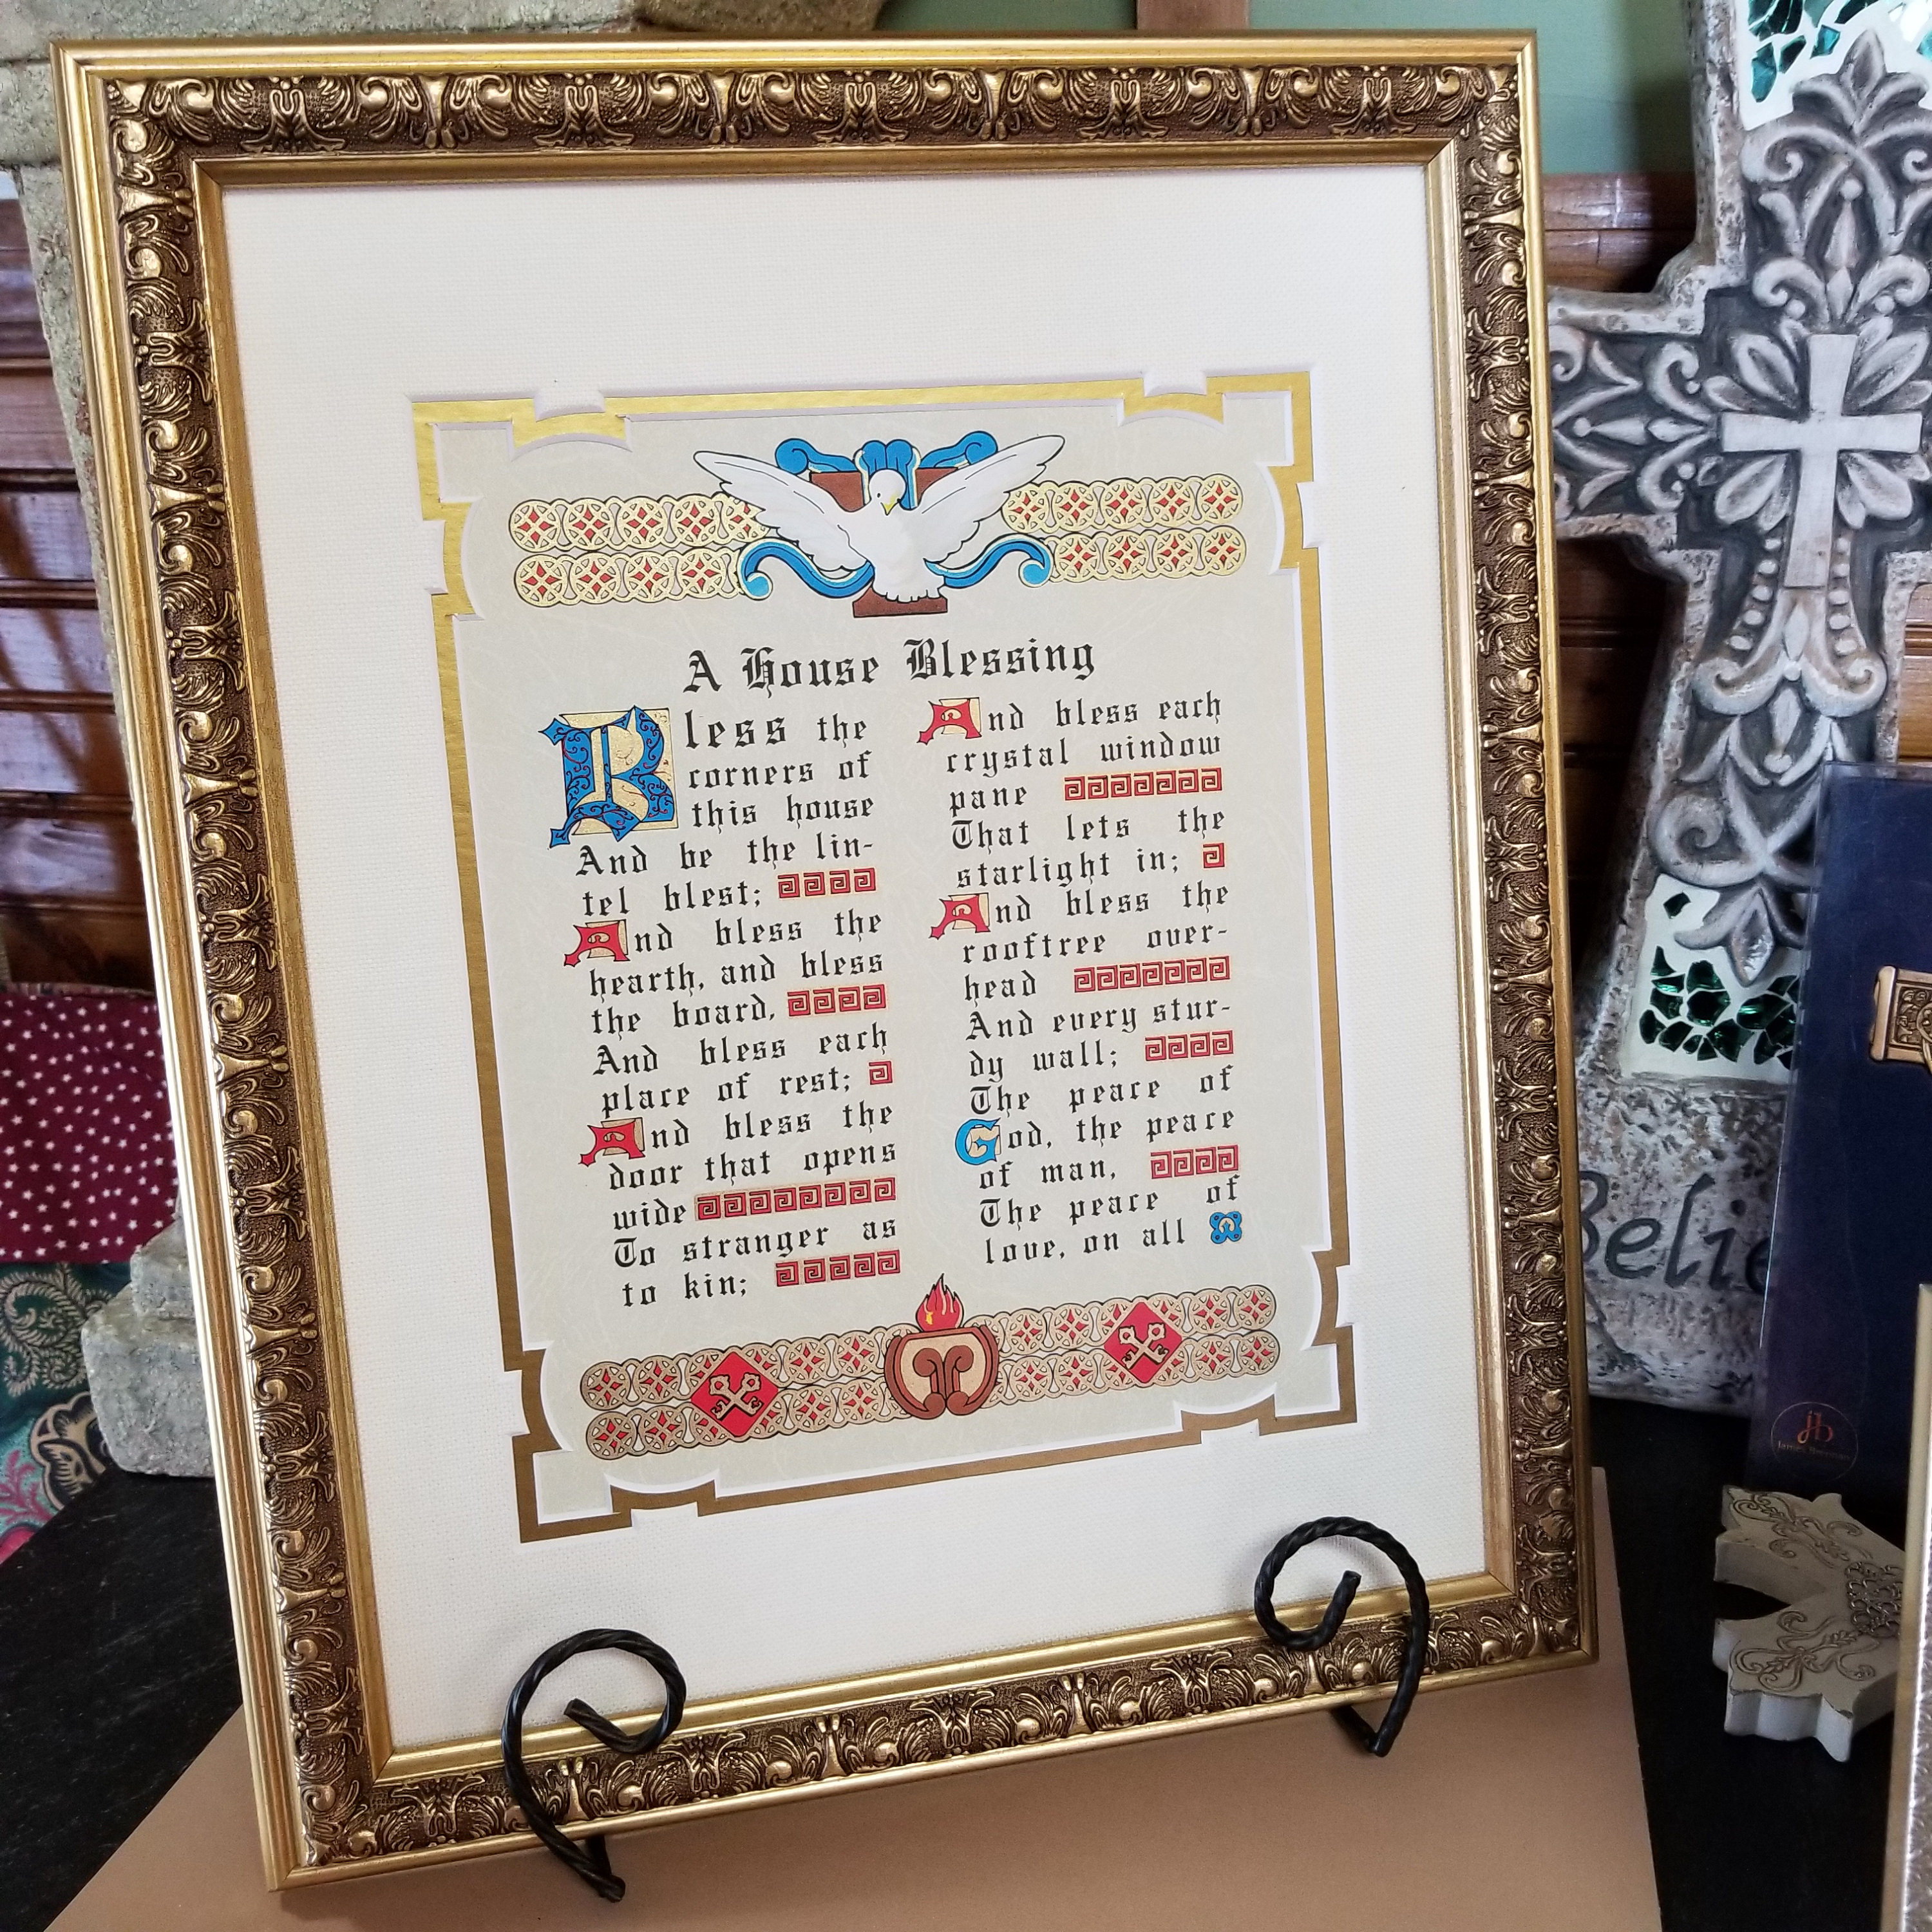 A House Blessing
Bless the
corners of
this house
And be the lin-
tel blest;
And bless the
hearth, and bless
the board,
And bless each
place of rest;
And bless the
door that opens
wide
To stranger as
to kin;
And bless each
crystal window
pane
That lets the
starlight in;
And bless the
rooftree over-
head
And every stur-
dy wall;
The peace of
God, the peace
of man,
The peace of
love, on all
Belie
jb